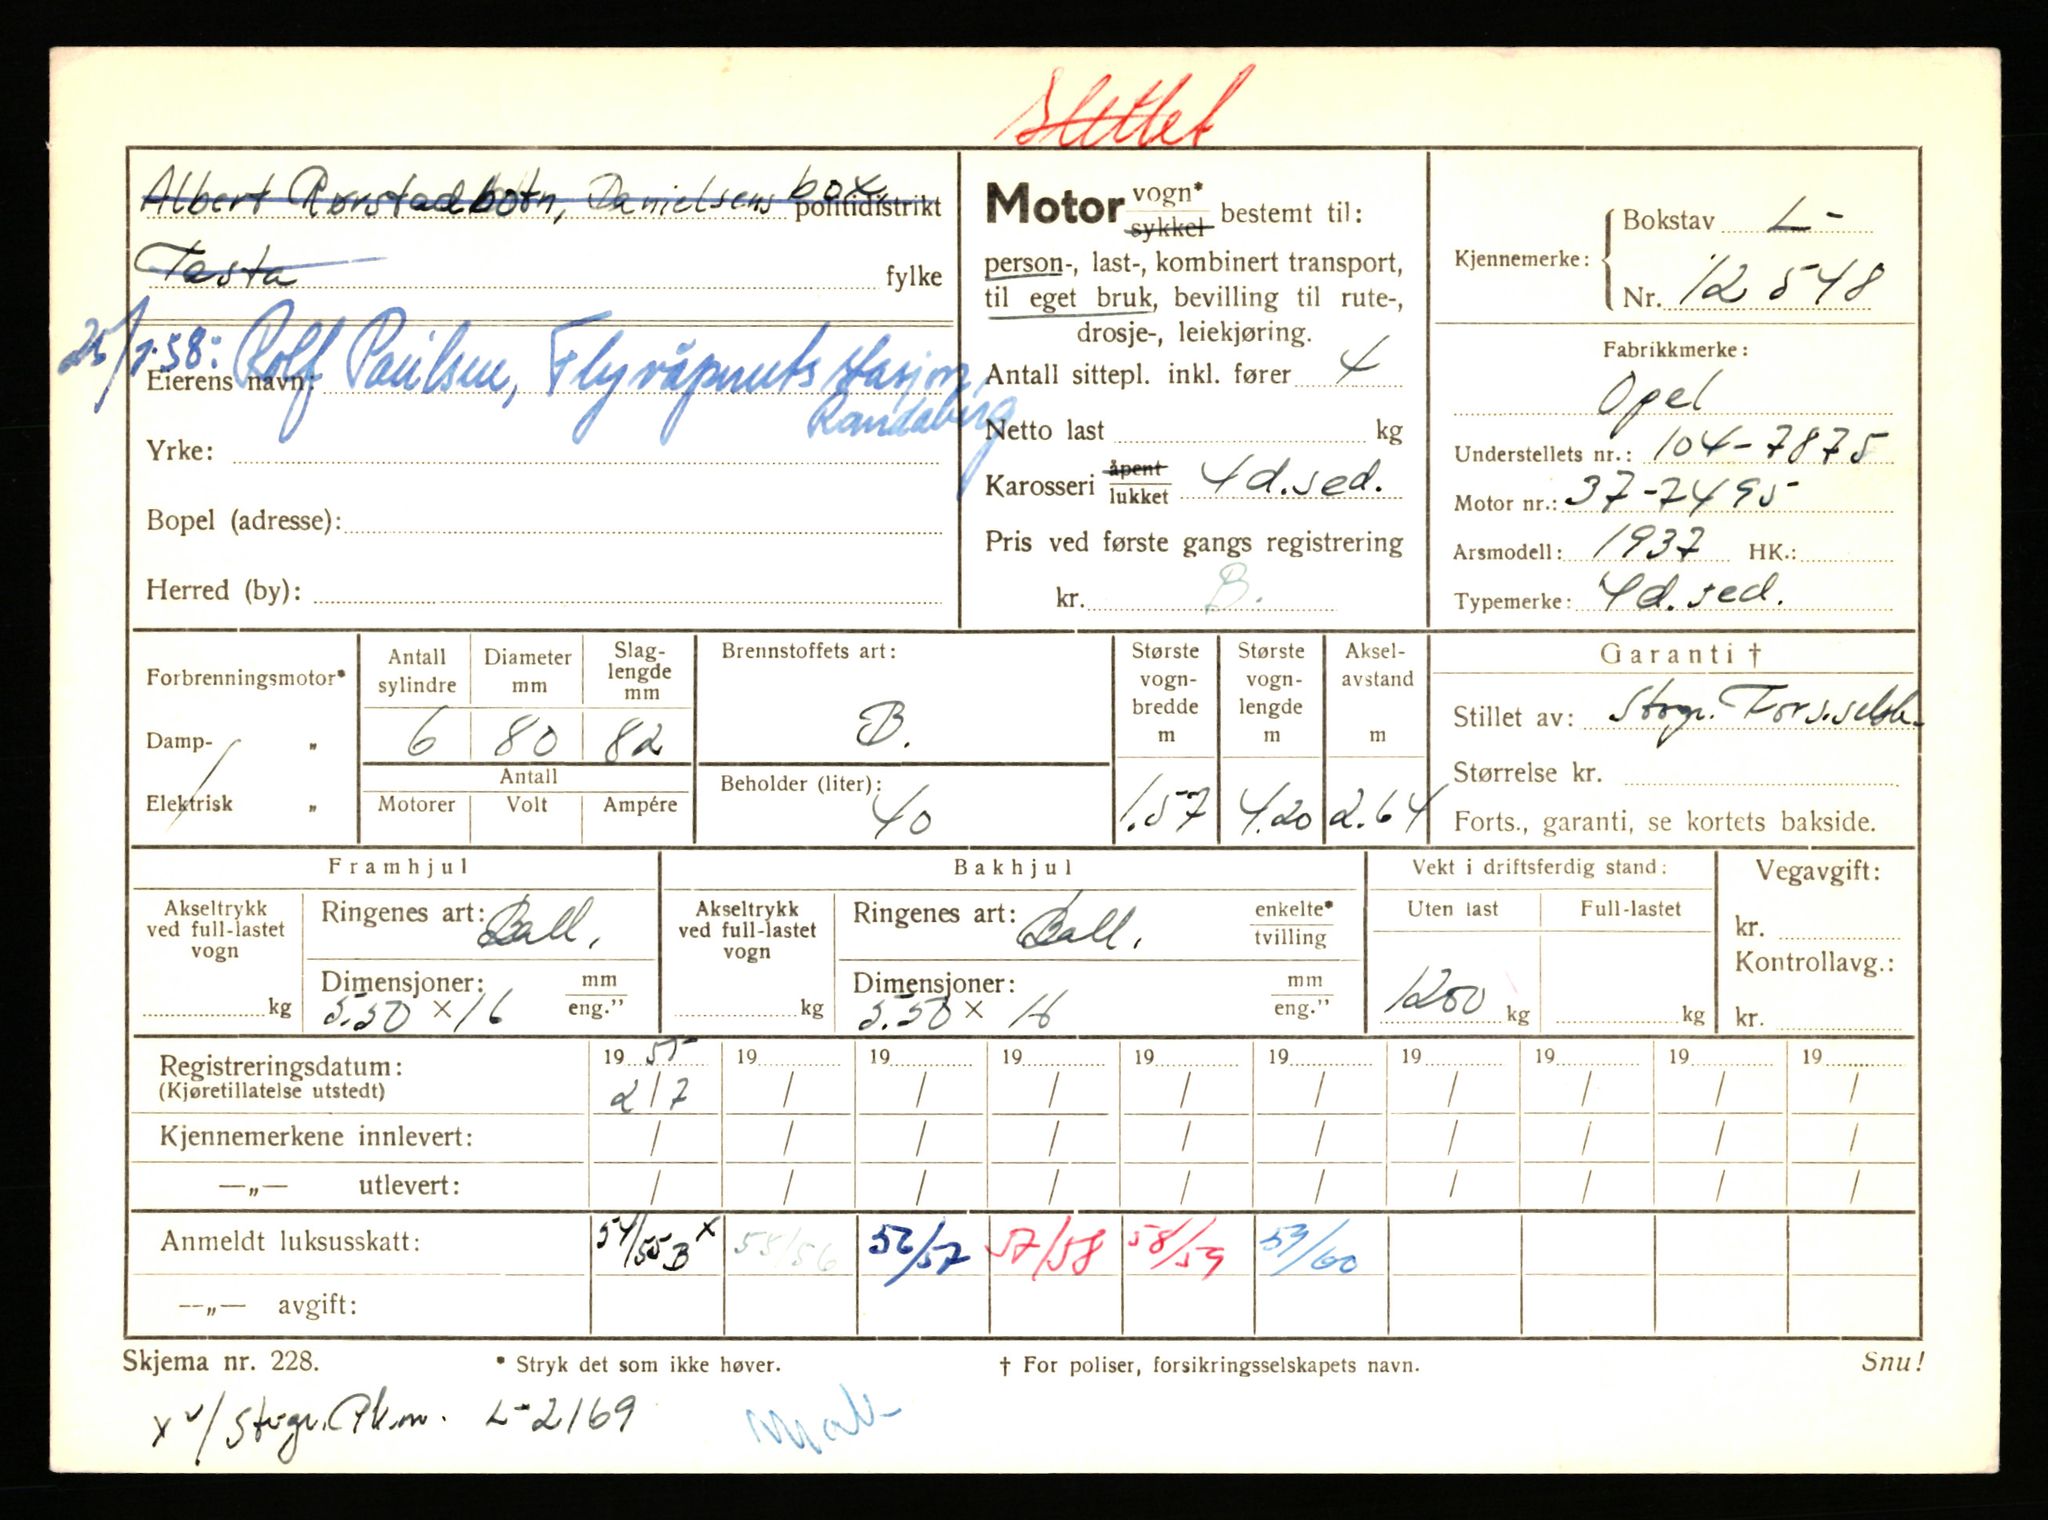 Slettet
Albert Rørstadbotn, Danielsens box, politidistrikt
Tasta fylke
25/7-58: Rolf Paulsen, Flyvåpnets stasjon,
Randaberg
Eierens navn:
Yrke:
Bopel (adresse):
Herred (by):
Motor vogn* sykkel bestemt til:
person-, last-, kombinert transport,
til eget bruk, bevilling til rute-,
drosje-, leiekjøring.
Antall sittepl. inkl. fører 4
Netto last kg
Karosseri åpent lukket 4d.sed.
Pris ved første gangs registrering
kr. B.
Kjennemerke: Bokstav L-
Nr. 12548
Fabrikkmerke:
Opel
Understellets nr.: 104-7875
Motor nr.: 37-7495
Arsmodell: 1937 HK.:
Typemerke: 4d. sed.
Forbrenningsmotor*
Damp- „
Elektrisk „
Antall sylindre 6
Diameter mm 80
Slag-lengde mm 82
Antall
Motorer Volt Ampére
Brennstoffets art:
B.
Beholder (liter):
40
Største vogn-bredde m 1.57
Største vogn-lengde m 4.20
Aksel-avstand m 2.64
Garanti †
Stillet av: Stvgr. Fors.selsk.
Størrelse kr.
Forts., garanti, se kortets bakside.
Framhjul
Akseltrykk ved full-lastet vogn
kg
Ringenes art: Ball.
Dimensjoner: mm eng.”
5.50 × 16
Bakhjul
Akseltrykk ved full-lastet vogn
kg
Ringenes art: Ball. enkelte* tvilling
Dimensjoner: mm eng.”
5.50 × 16
Vekt i driftsferdig stand:
Uten last Full-lastet
1200 kg kg
Vegavgift:
kr.
Kontrollavg.:
kr.
Registreringsdatum: 1955 19 19 19 19 19 19 19 19 19
(Kjøretillatelse utstedt) 2/7 / / / / / / / / /
Kjennemerkene innlevert: / / / / / / / / / /
—„— utlevert: / / / / / / / / / /
Anmeldt luksusskatt: 54/55B x 55/56 56/57 57/58 58/59 59/60
—„— avgift:
Skjema nr. 228. * Stryk det som ikke høver. † For poliser, forsikringsselskapets navn. Snu!
x v/ Stvgr. Pk.m. L-2169